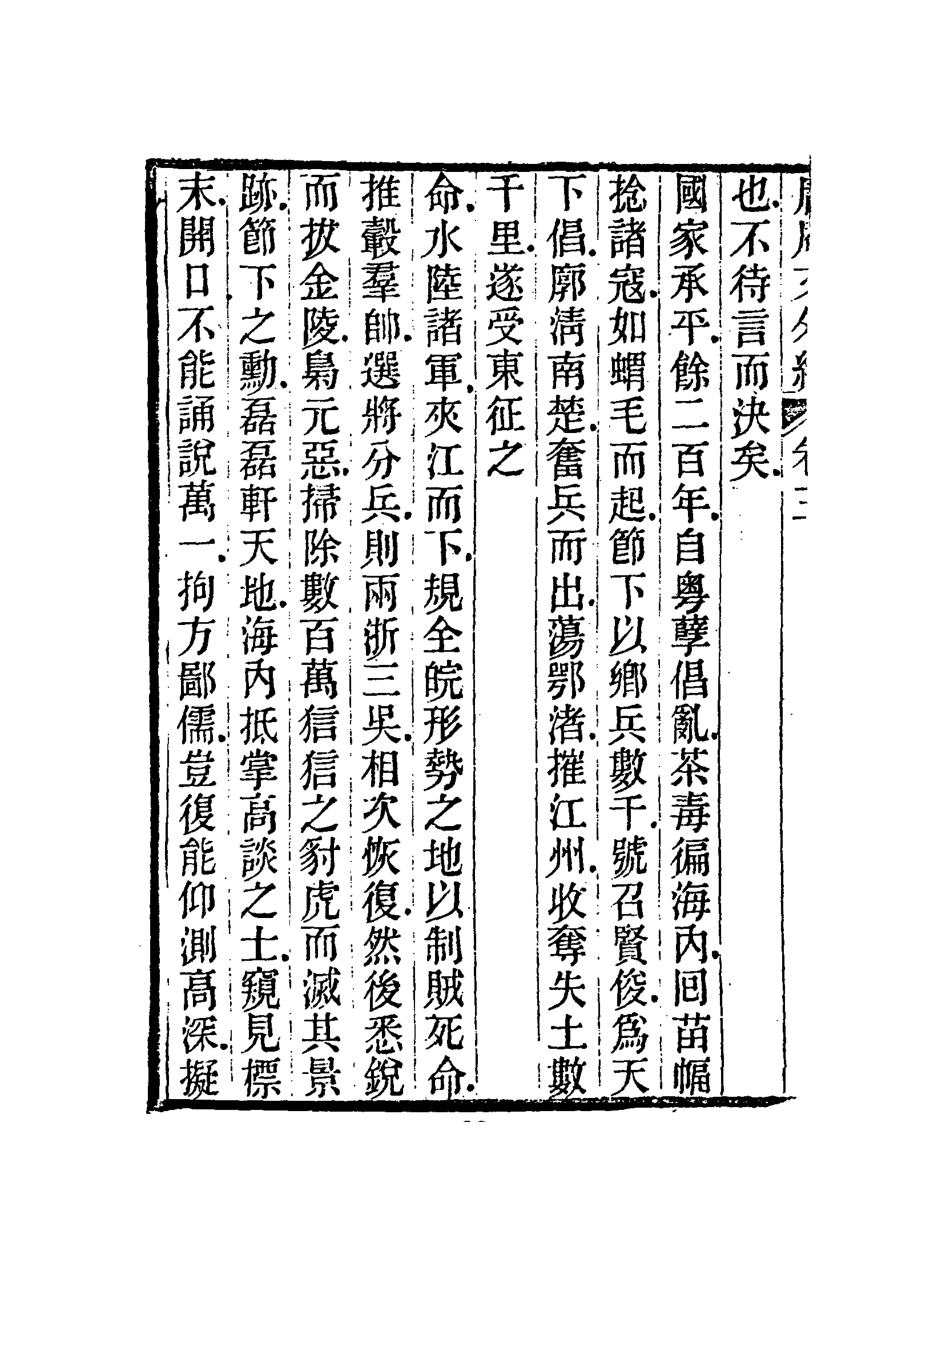 也不待言而決矣
國家承平餘二百年自粵孽倡亂荼毒徧海內回苗幅
捻諸寇如蝟毛而起節下以鄉兵數千號召賢俊爲天
下倡廓淸南楚奮兵而出蕩鄂渚摧江州收奪失土數
千里遂受東征之
命水陸諸軍夾江而下規全皖形勢之地以制賊死命
推轂羣帥選將分兵則兩浙三吳相次恢復然後悉銳
而拔金陵梟元惡掃除數百萬狺狺之豺虎而滅其景
跡節下之勳磊磊軒天地海內抵掌高談之士窺見標
末開口不能誦說萬一拘方鄙儒豈復能仰測高深擬